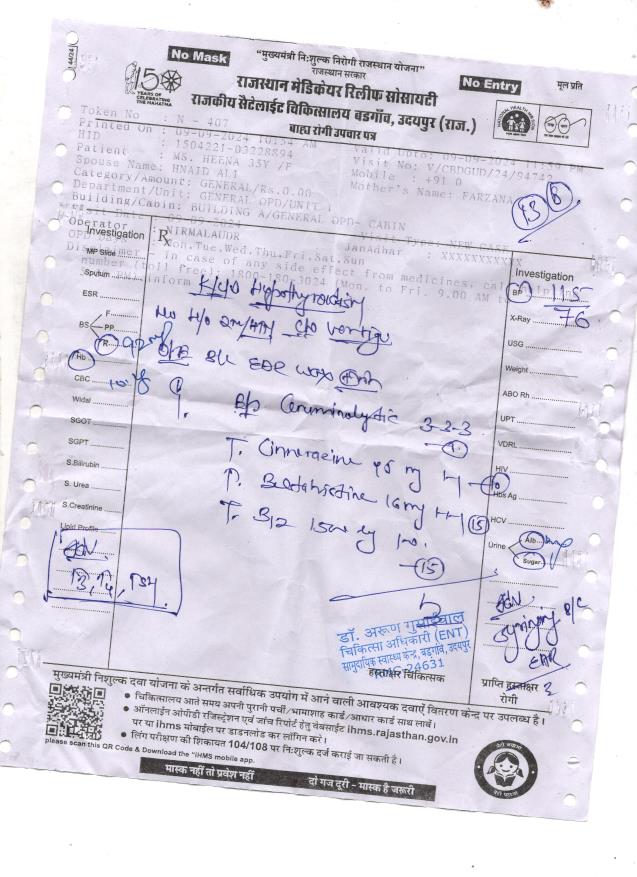 44/24
No Mask
"मुख्यमंत्री निःशुल्क निरोगी राजस्थान योजना"
राजस्थान सरकार
No Entry
मूल प्रति
150
YEARS OF
CELEBRATING
THE MAHATMA
राजस्थान मेडिकेयर रिलीफ सोसायटी
राजकीय सेटेलाईट चिकित्सालय बड़गाँव, उदयपुर (राज.)
बाह्य रोगी उपचार पत्र
Token No : N - 407
Printed On : 09-09-2024 10:54 AM
Valid Upto: 09-09-2024 11:54 PM
HID : 1504221-03228894
Visit No: V/CBDGUD/24/94742
Patient : MS. HEENA 35Y /F
Mobile : +91 0
Spouse Name: HNAID ALI
Mother's Name: FARZANA
Category/Amount: GENERAL/Rs.0.00
Department/Unit: GENERAL OPD/UNIT
Building/Cabin: BUILDING A/GENERAL OPD- CABIN
13 B
Visit Type: NEW CASE
Operator : NIRMALAUDR
JanAadhar : XXXXXXXXXX
Mon,Tue,Wed,Thu,Fri,Sat,Sun
in case of any side effect from medicines,
number (toll free): 1800-180-3024 (Mon. to Fri. 9.00 AM
Investigation
Rx
MP Slide
Sputum
ESR
F
BS PP
R
Hb
CBC
Widal
SGOT
SGPT
S.Bilirubin
S. Urea
S.Creatinine
Lipid Profile
T3, T4, TSH
K/C/O Hypothyroidism
No H/O DM/HTN C/O Vertigo
O/E B/L EAR wax
E/D Cerumenolytic 3-3-3
T. Cinnarazine
T. Betahistine 16 mg
T. B12 1500
15
Investigation
BP 115
76
X-Ray
USG
Weight
ABO Rh
UPT
VDRL
HIV
Hbs Ag
HCV
Urine Alb
Sugar
Syringing B/L
EAR
डॉ. अरूण
चिकित्सा अधिकारी (ENT)
सामुदायिक स्वास्थ्य केन्द्र, बड़गाँव, उदयपुर
24631
हस्ताक्षर चिकित्सक
प्राप्ति हस्ताक्षर
रोगी
मुख्यमंत्री निशुल्क दवा योजना के अन्तर्गत सर्वाधिक उपयोग में आने वाली आवश्यक दवाऐं वितरण केन्द्र पर उपलब्ध है।
• चिकित्सालय आते समय अपनी पुरानी पर्ची/भामाशाह कार्ड/आधार कार्ड साथ लावें।
• ऑनलाईन ओपीडी रजिस्ट्रेशन एवं जांच रिपोर्ट हेतु वेबसाईट ihms.rajasthan.gov.in
पर या ihms मोबाईल पर डाउनलोड कर लॉगिन करें।
• लिंग परीक्षण की शिकायत 104/108 पर निःशुल्क दर्ज कराई जा सकती है।
please scan this QR Code & Download the "iHMS mobile app.
मास्क नहीं तो प्रवेश नहीं
दो गज दूरी - मास्क है जरूरी